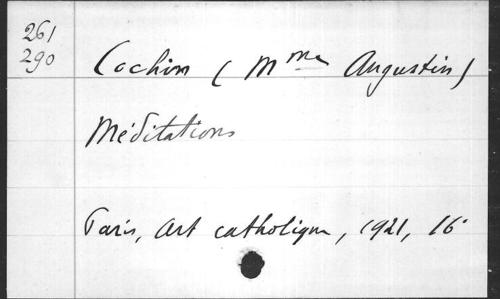 261
290
Cochin (Mme Augustin)
Méditations
Paris, Art catholique, 1921, 16°